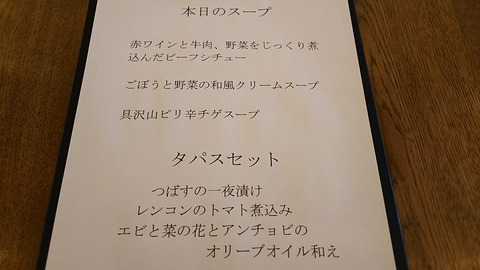 本日のスープ
赤ワインと牛肉、野菜をじっくり煮
込んだビーフシチュー
ごぼうと野菜の和風クリームスープ
具沢山ピリ辛チゲスープ
タパスセット
つばすの一夜漬け
レンコンのトマト煮込み
エビと菜の花とアンチョビの
オリーブオイル和え